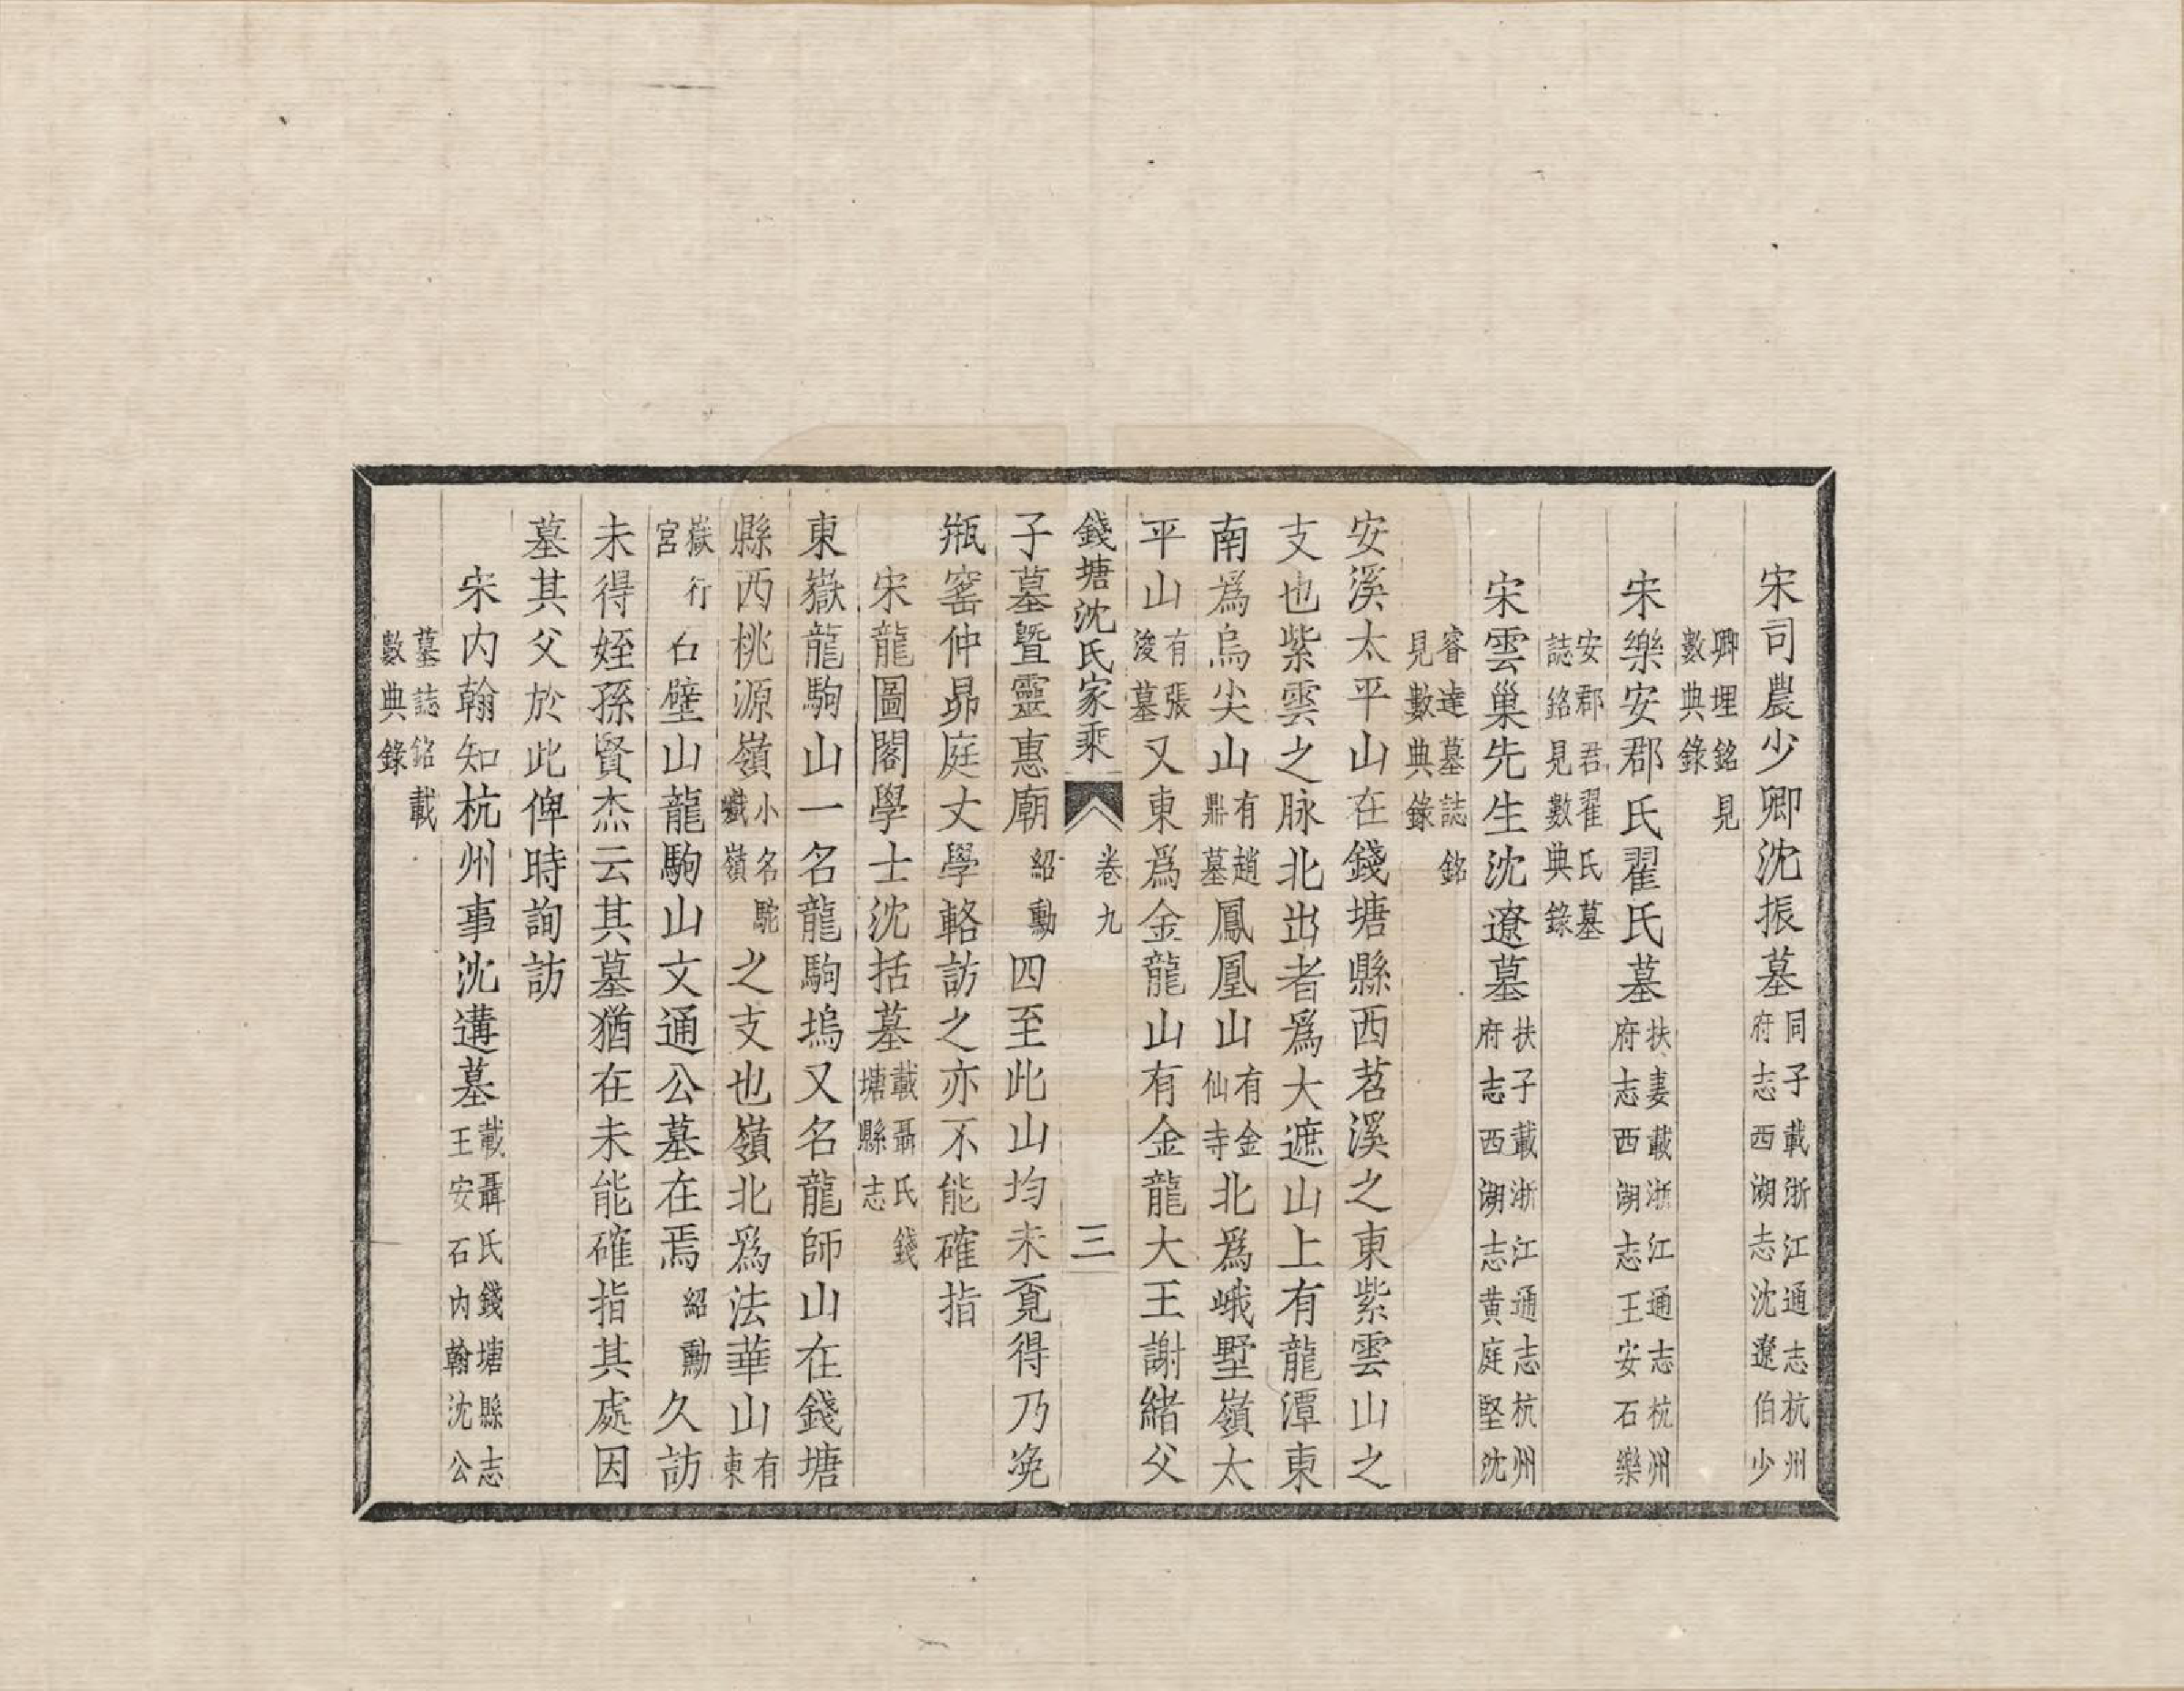 宋司農少卿沈振墓同子載浙江通志杭州府志西湖志沈遼伯少
卿埋銘見數典錄
宋樂安郡氏翟氏墓扶妻載浙江通志杭州府志西湖志王安石樂
安郡君翟氏墓誌銘見數典錄
宋雲巢先生沈遼墓扶子載浙江通志杭州府志西湖志黄庭堅沈
睿達墓誌銘見數典錄
安溪太平山在錢塘縣西苕溪之東紫雲山之
支也紫雲之脉北出者爲大遮山上有龍潭東
南爲烏尖山有趙鼎墓鳳凰山有金仙寺北爲峨墅嶺太
平山有張浚墓又東爲金龍山有金龍大王謝緒父
錢塘沈氏家乘 卷九 三
子墓暨靈惠廟紹勳四至此山均未覔得乃浼
瓶窰仲昴庭丈學輅訪之亦不能確指
宋龍圖閣學士沈括墓載聶氏錢塘縣志
東嶽龍駒山一名龍駒塢又名龍師山在錢塘
縣西桃源嶺小名駝巘嶺之支也嶺北爲法華山有東
嶽行宮石壁山龍駒山文通公墓在焉紹勳久訪
未得姪孫賢杰云其墓猶在未能確指其處因
墓其父於此俾時詢訪
宋内翰知杭州事沈遘墓載聶氏錢塘縣志王安石内翰沈公
墓誌銘載數典錄